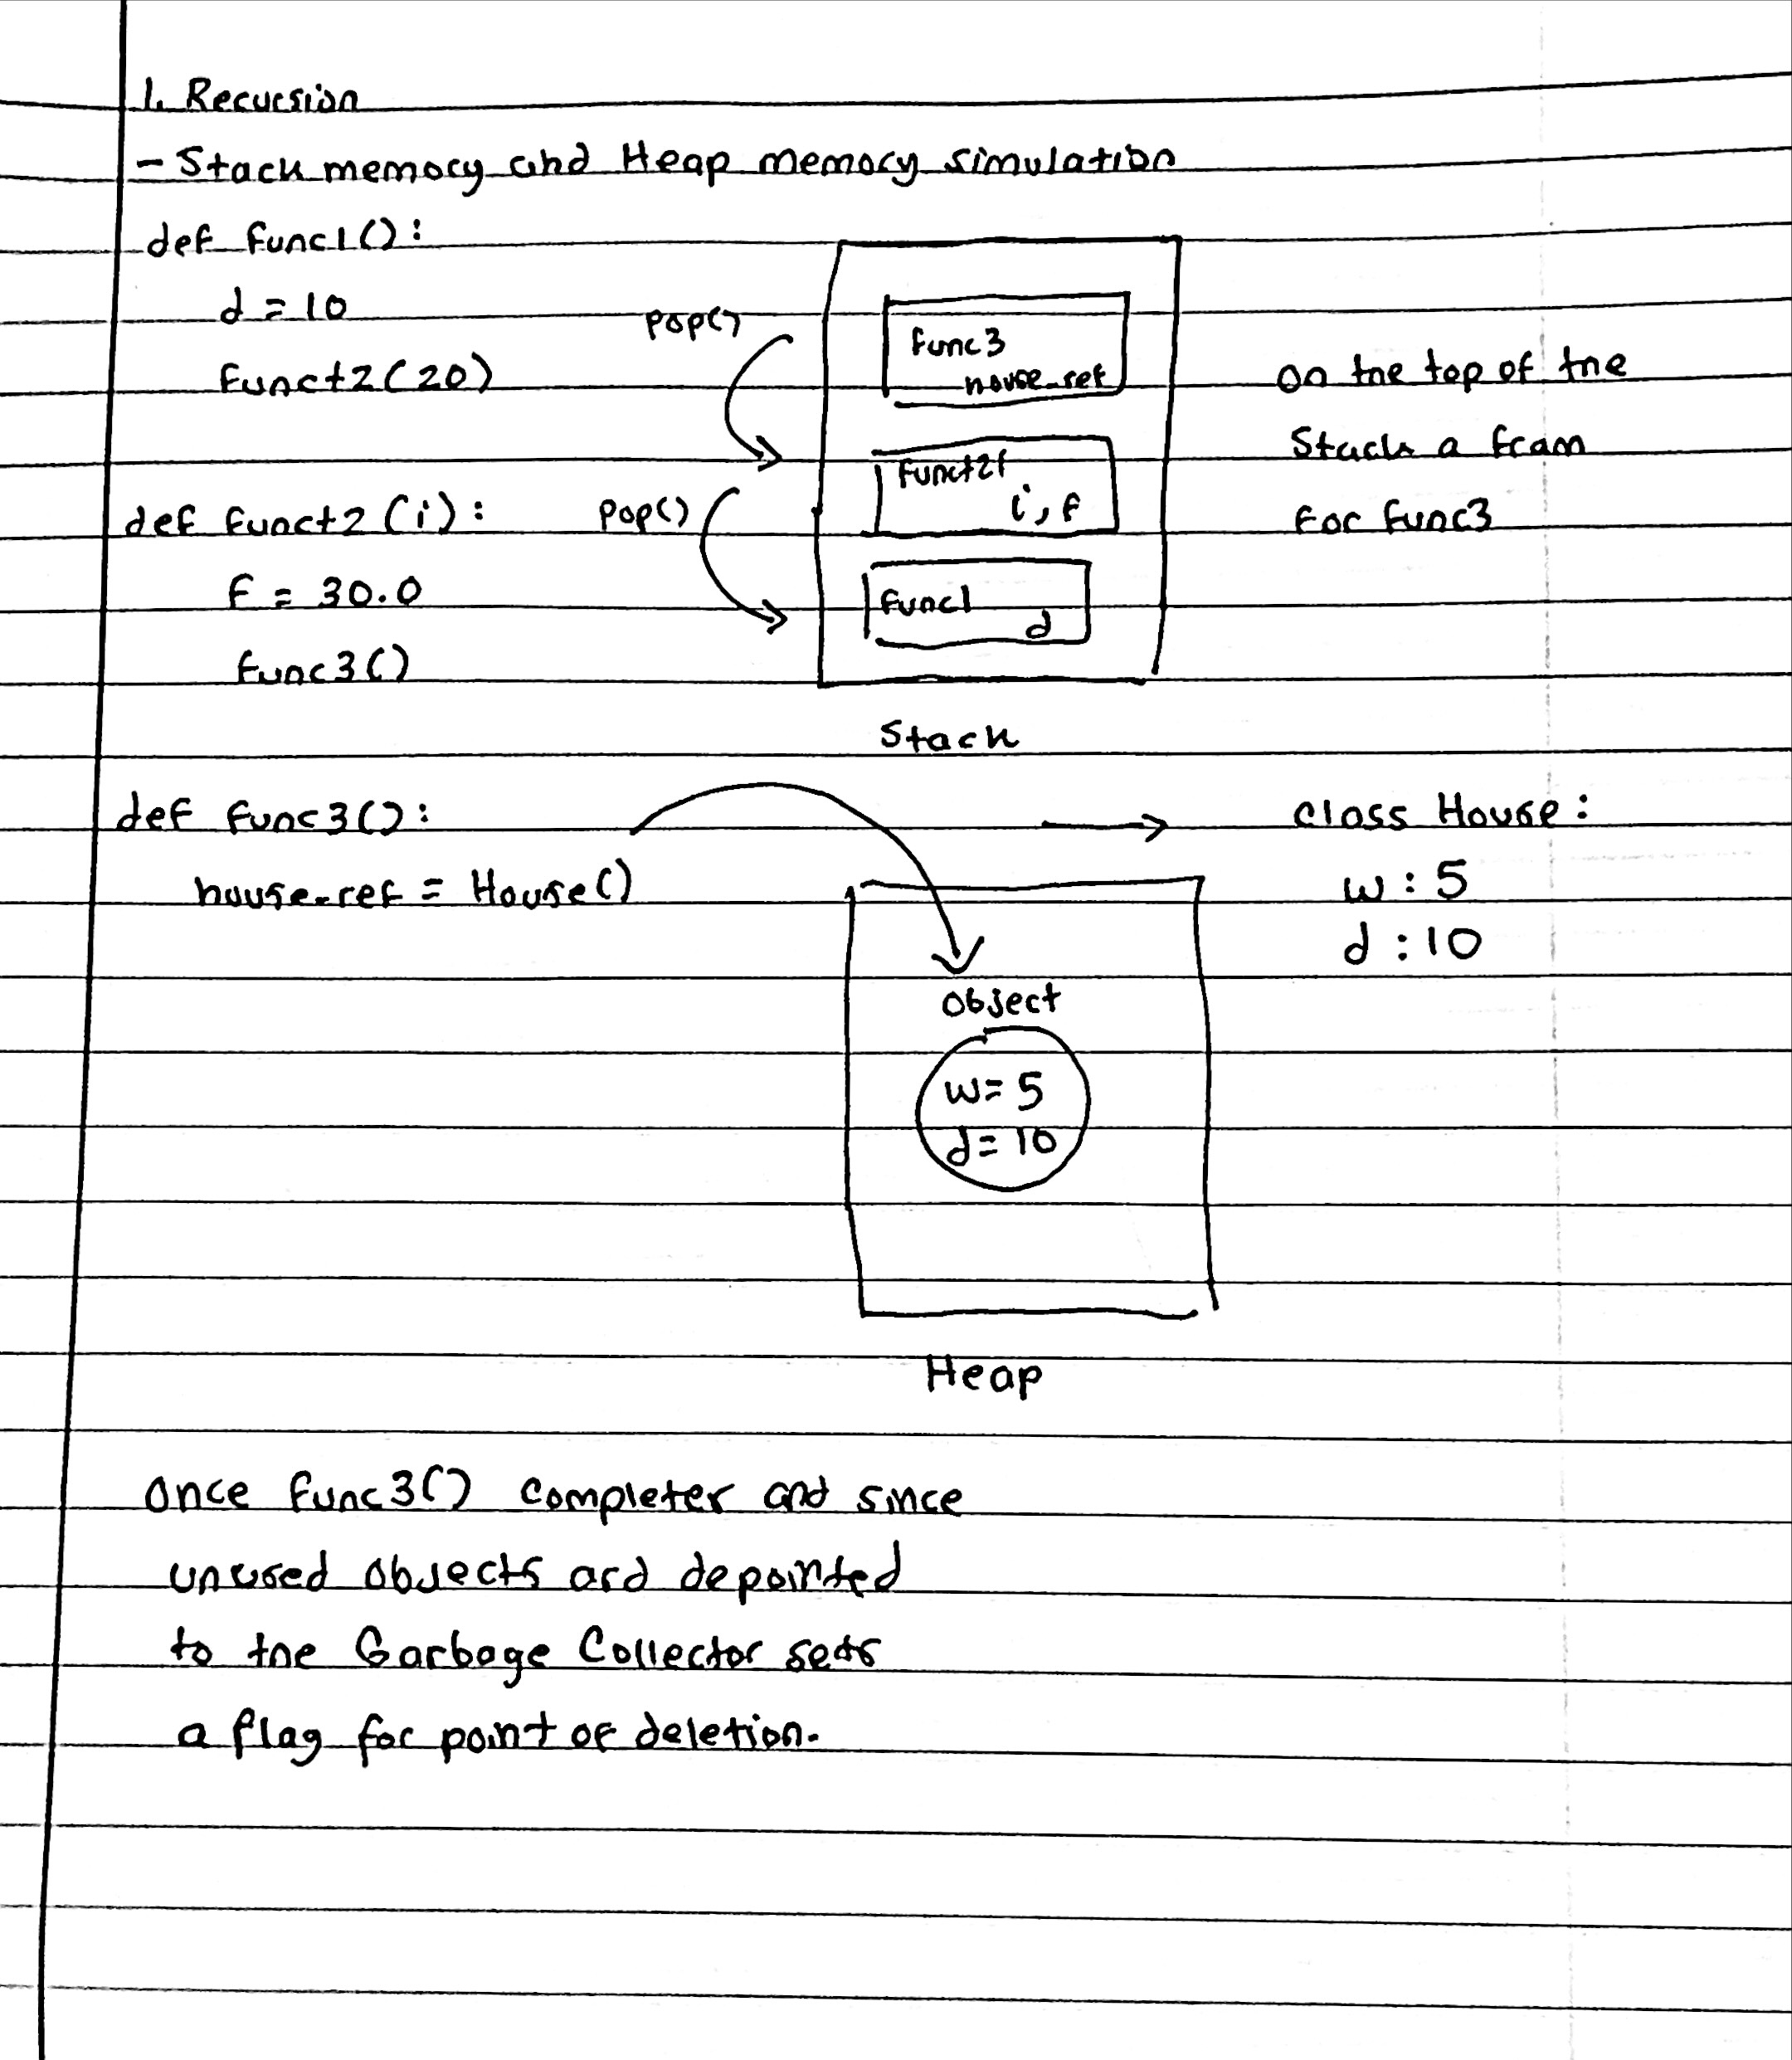 1. Recursion
- Stack memory and Heap memory simulation
def func1():
d = 10
funct2(20)
def funct2(i):
f = 30.0
func3()
pop()
pop()
func3
house_ref
funct2
i, f
func1
d
Stack
on the top of the
Stack a fram
for func3
def func3():
house_ref = House()
class House:
w : 5
d : 10
Object
w = 5
d = 10
Heap
Once func3() completer and since
unused objects ard depointed
to the Garbage Collector sets
a flag for point of deletion.